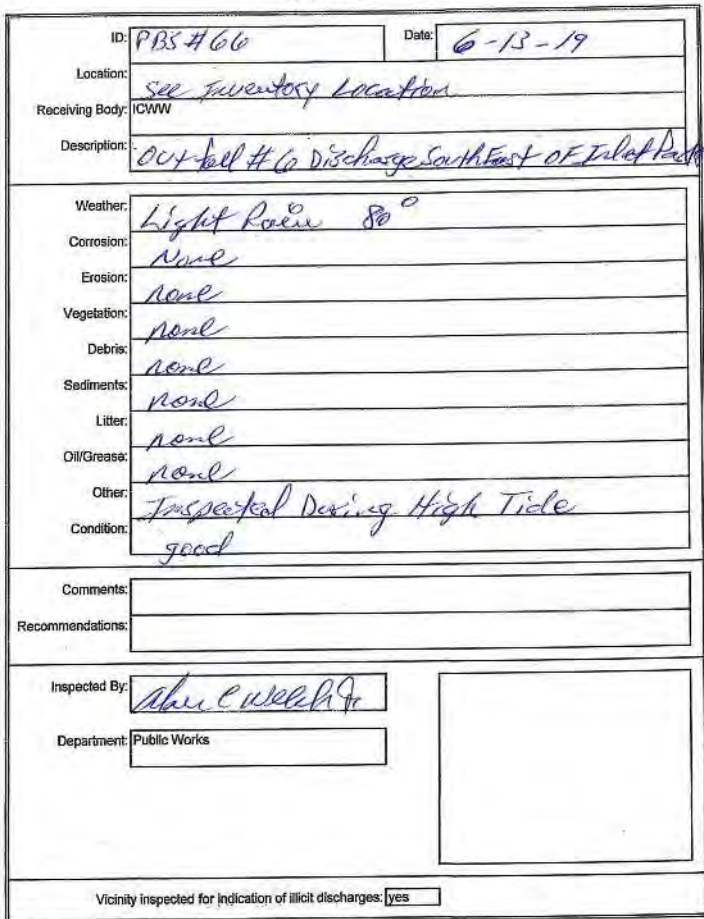 ID: PBS #66 Date: 6-13-19
Location: See Inventory Location
Receiving Body: ICWW
Description: Outfall #6 Discharge South East OF Inlet Park
Weather: Light Rain 80°
Corrosion: None
Erosion: none
Vegetation: none
Debris: none
Sediments: none
Litter: none
Oil/Grease: none
Other: Inspected During High Tide
Condition: good
Comments:
Recommendations:
Inspected By: C Welch Jr
Department: Public Works
Vicinity inspected for indication of illicit discharges: yes